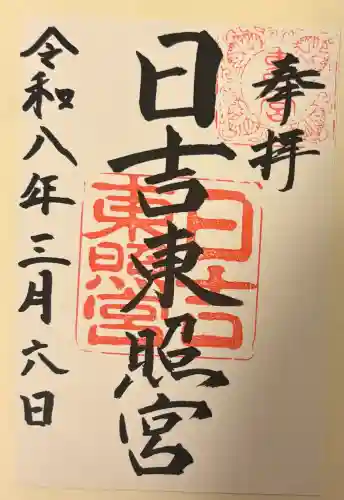 奉拝
日吉東照宮
令和八年三月六日
日吉
東照宮